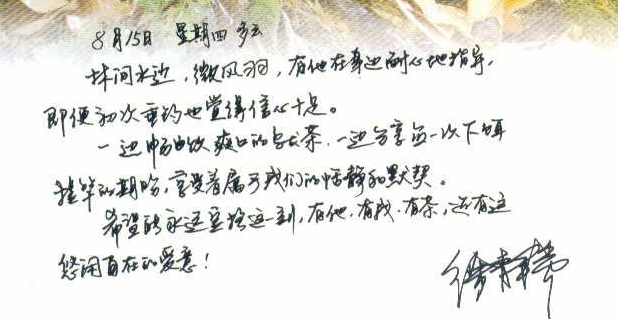 8月15日 星期四 多云
林间水边,微风羽,有他在身边耐心地指导,
即便初次垂钓也觉得信心十足。
一边畅饮爽口的乌龙茶,一边分享每一次下饵
挂竿的期盼,享受着属于我们的恬静和默契。
希望能永远定格这一刻,有他,有我,有茶,还有这
悠闲自在的爱意!